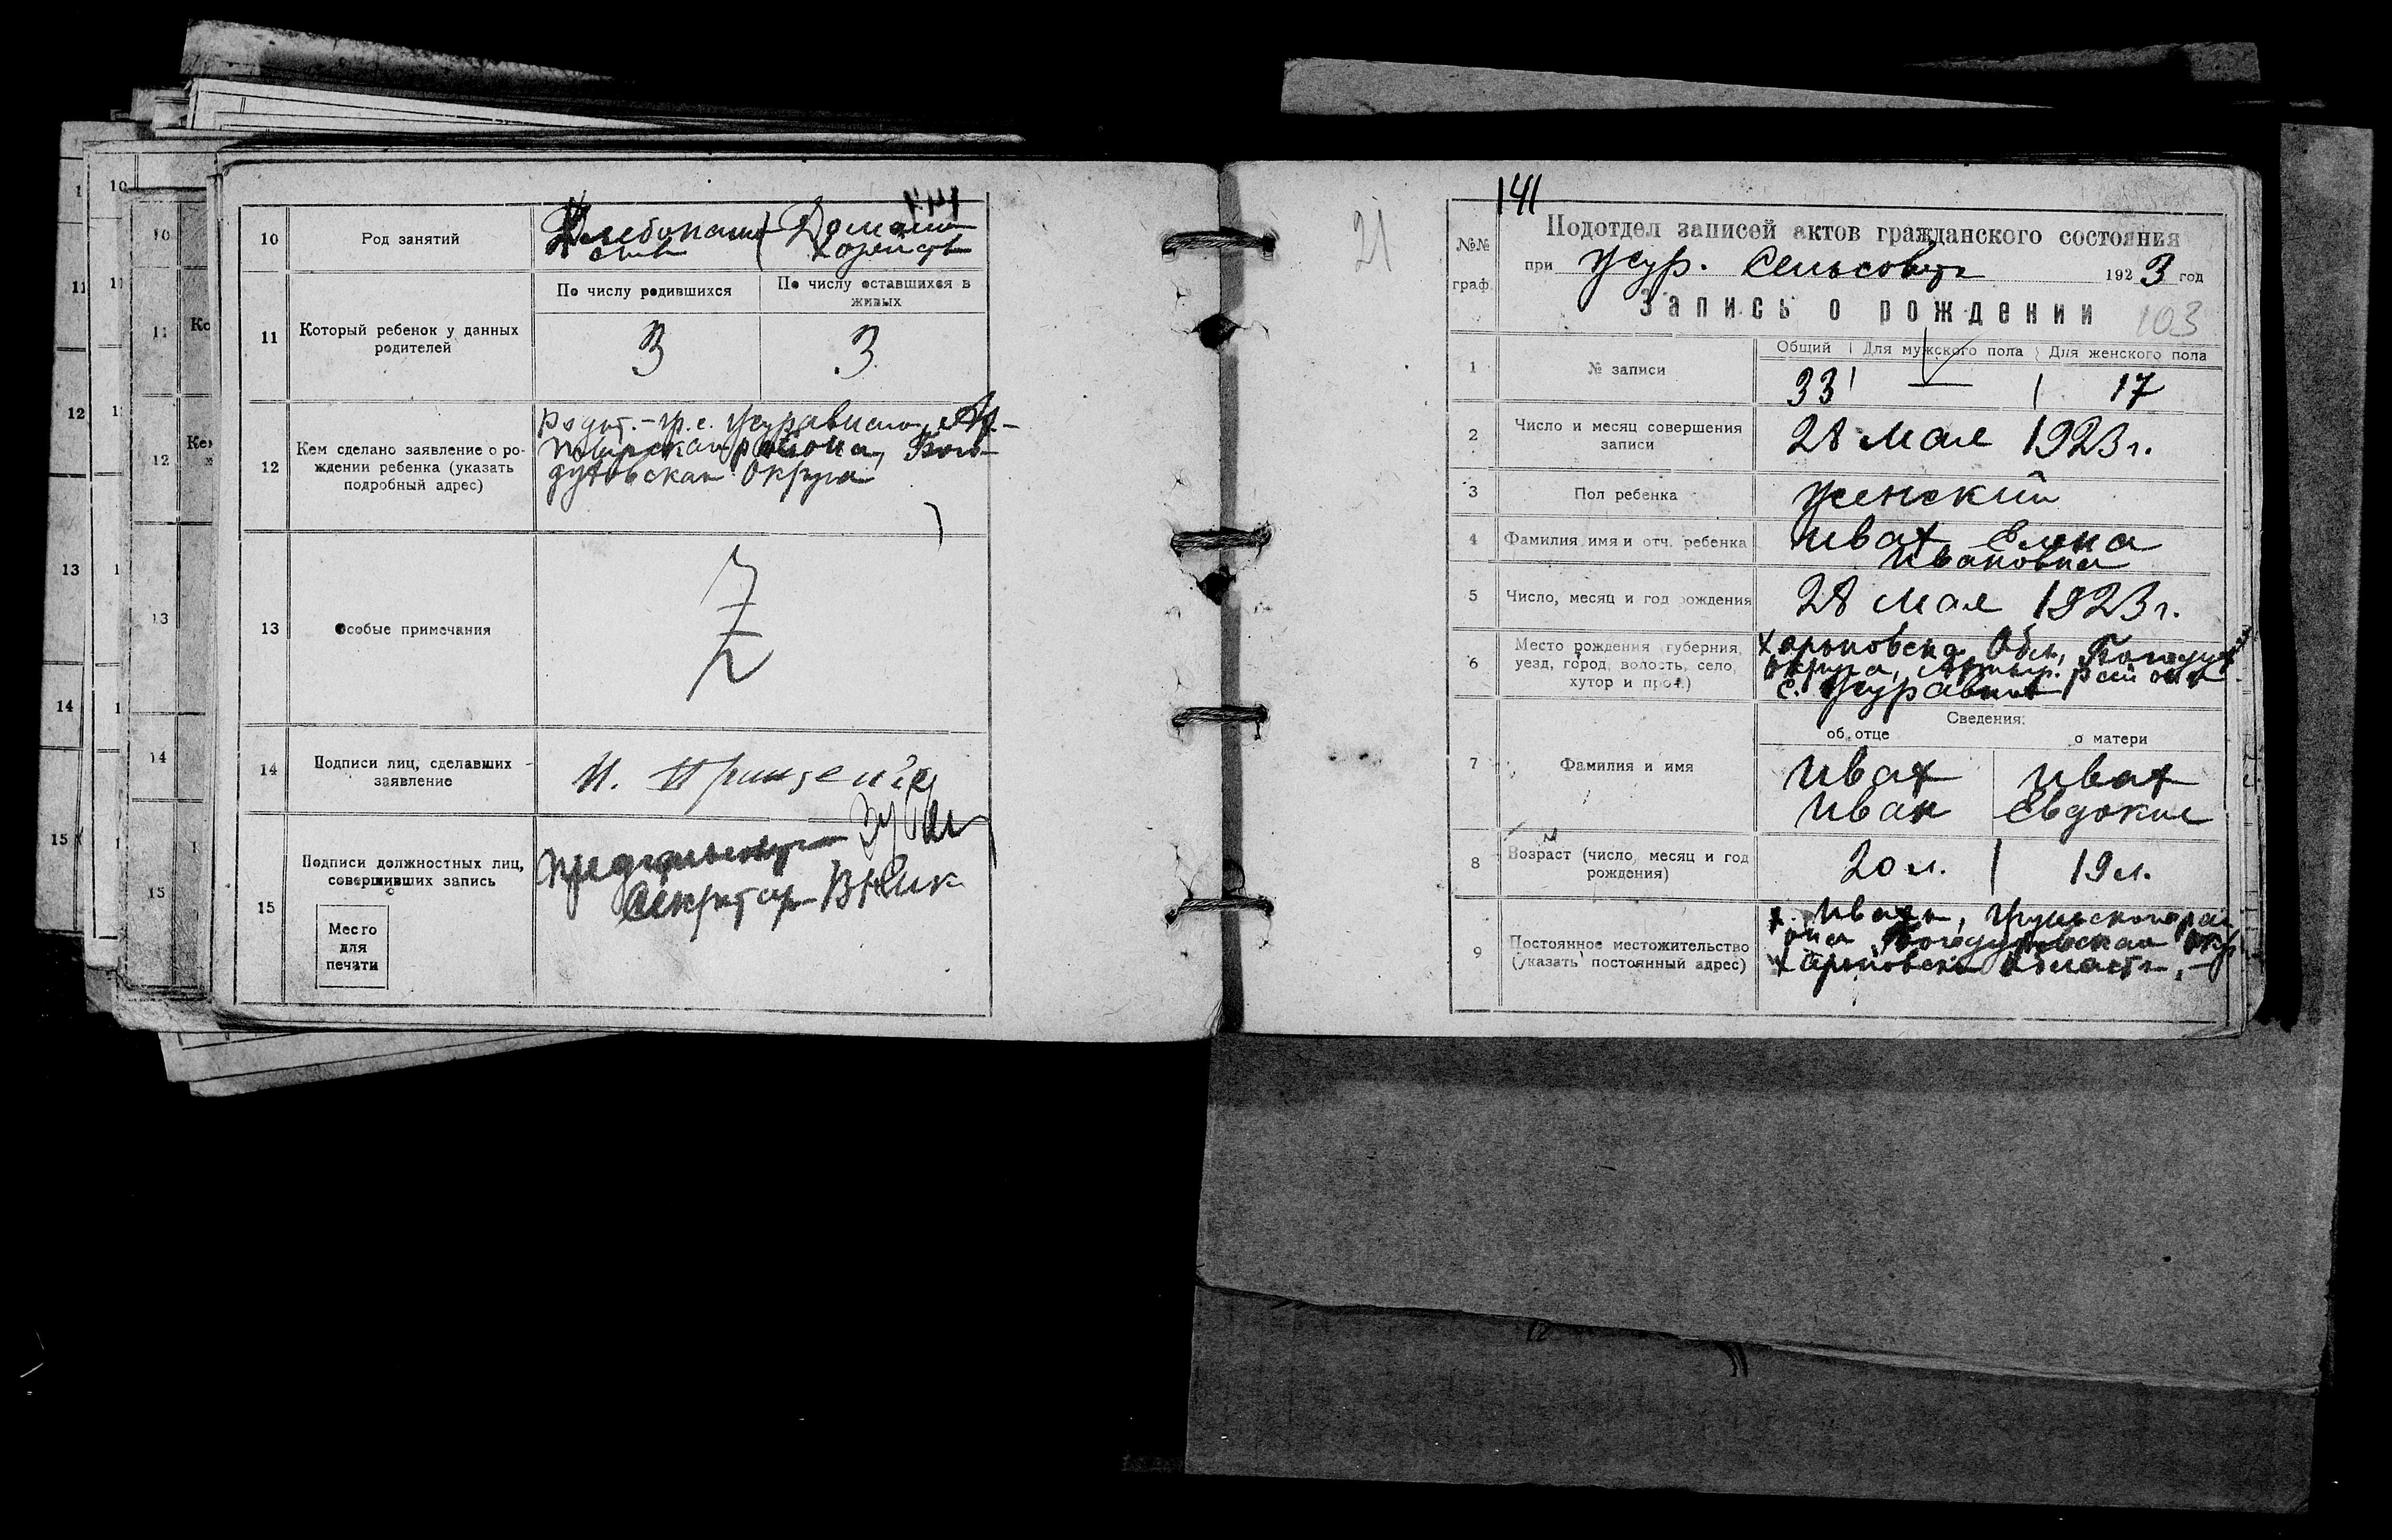 10
Род занятий
Хлебопаше-
ство
Домашн
хозяйств
11
Который ребенок у данных
родителей
По числу родившихся
По числу оставшихся в
живых
3
3
12
Кем сделано заявление о ро-
ждении ребенка (указать
подробный адрес)
района, Бого-
духовская округа
13
Особые примечания
Z
14
Подписи лиц, сделавших
заявление
И.
15
Подписи должностных лиц,
совершивших запись
Место
для
печати
Предсельсовета
Секретарь
21
141
№№
граф.
Подотдел записей актов гражданского состояния
при Жур. Сельсовете 1923 год
Запись о рождении
103
1
№ записи
Общий
Для мужского пола
Для женского пола
33
—
17
2
Число и месяц совершения
записи
28 мая 1923 г.
3
Пол ребенка
Женский
4
Фамилия, имя и отч. ребенка
Ивах Елена
Ивановна
5
Число, месяц и год рождения
28 мая 1923 г.
6
Место рождения (губерния,
уезд, город, волость, село,
хутор и проч.)
Харьковска Обл., Богодух
округа, района
с. Журавное
7
Фамилия и имя
Сведения:
об отце
о матери
Ивах
Иван
Ивах
Евдокия
8
Возраст (число, месяц и год
рождения)
20 л.
19 л.
9
Постоянное местожительство
(указать постоянный адрес)
х. Ивахи, Грунского рай
она Богодуховская окр
Харьковска области,
10
11
12
13
14
15